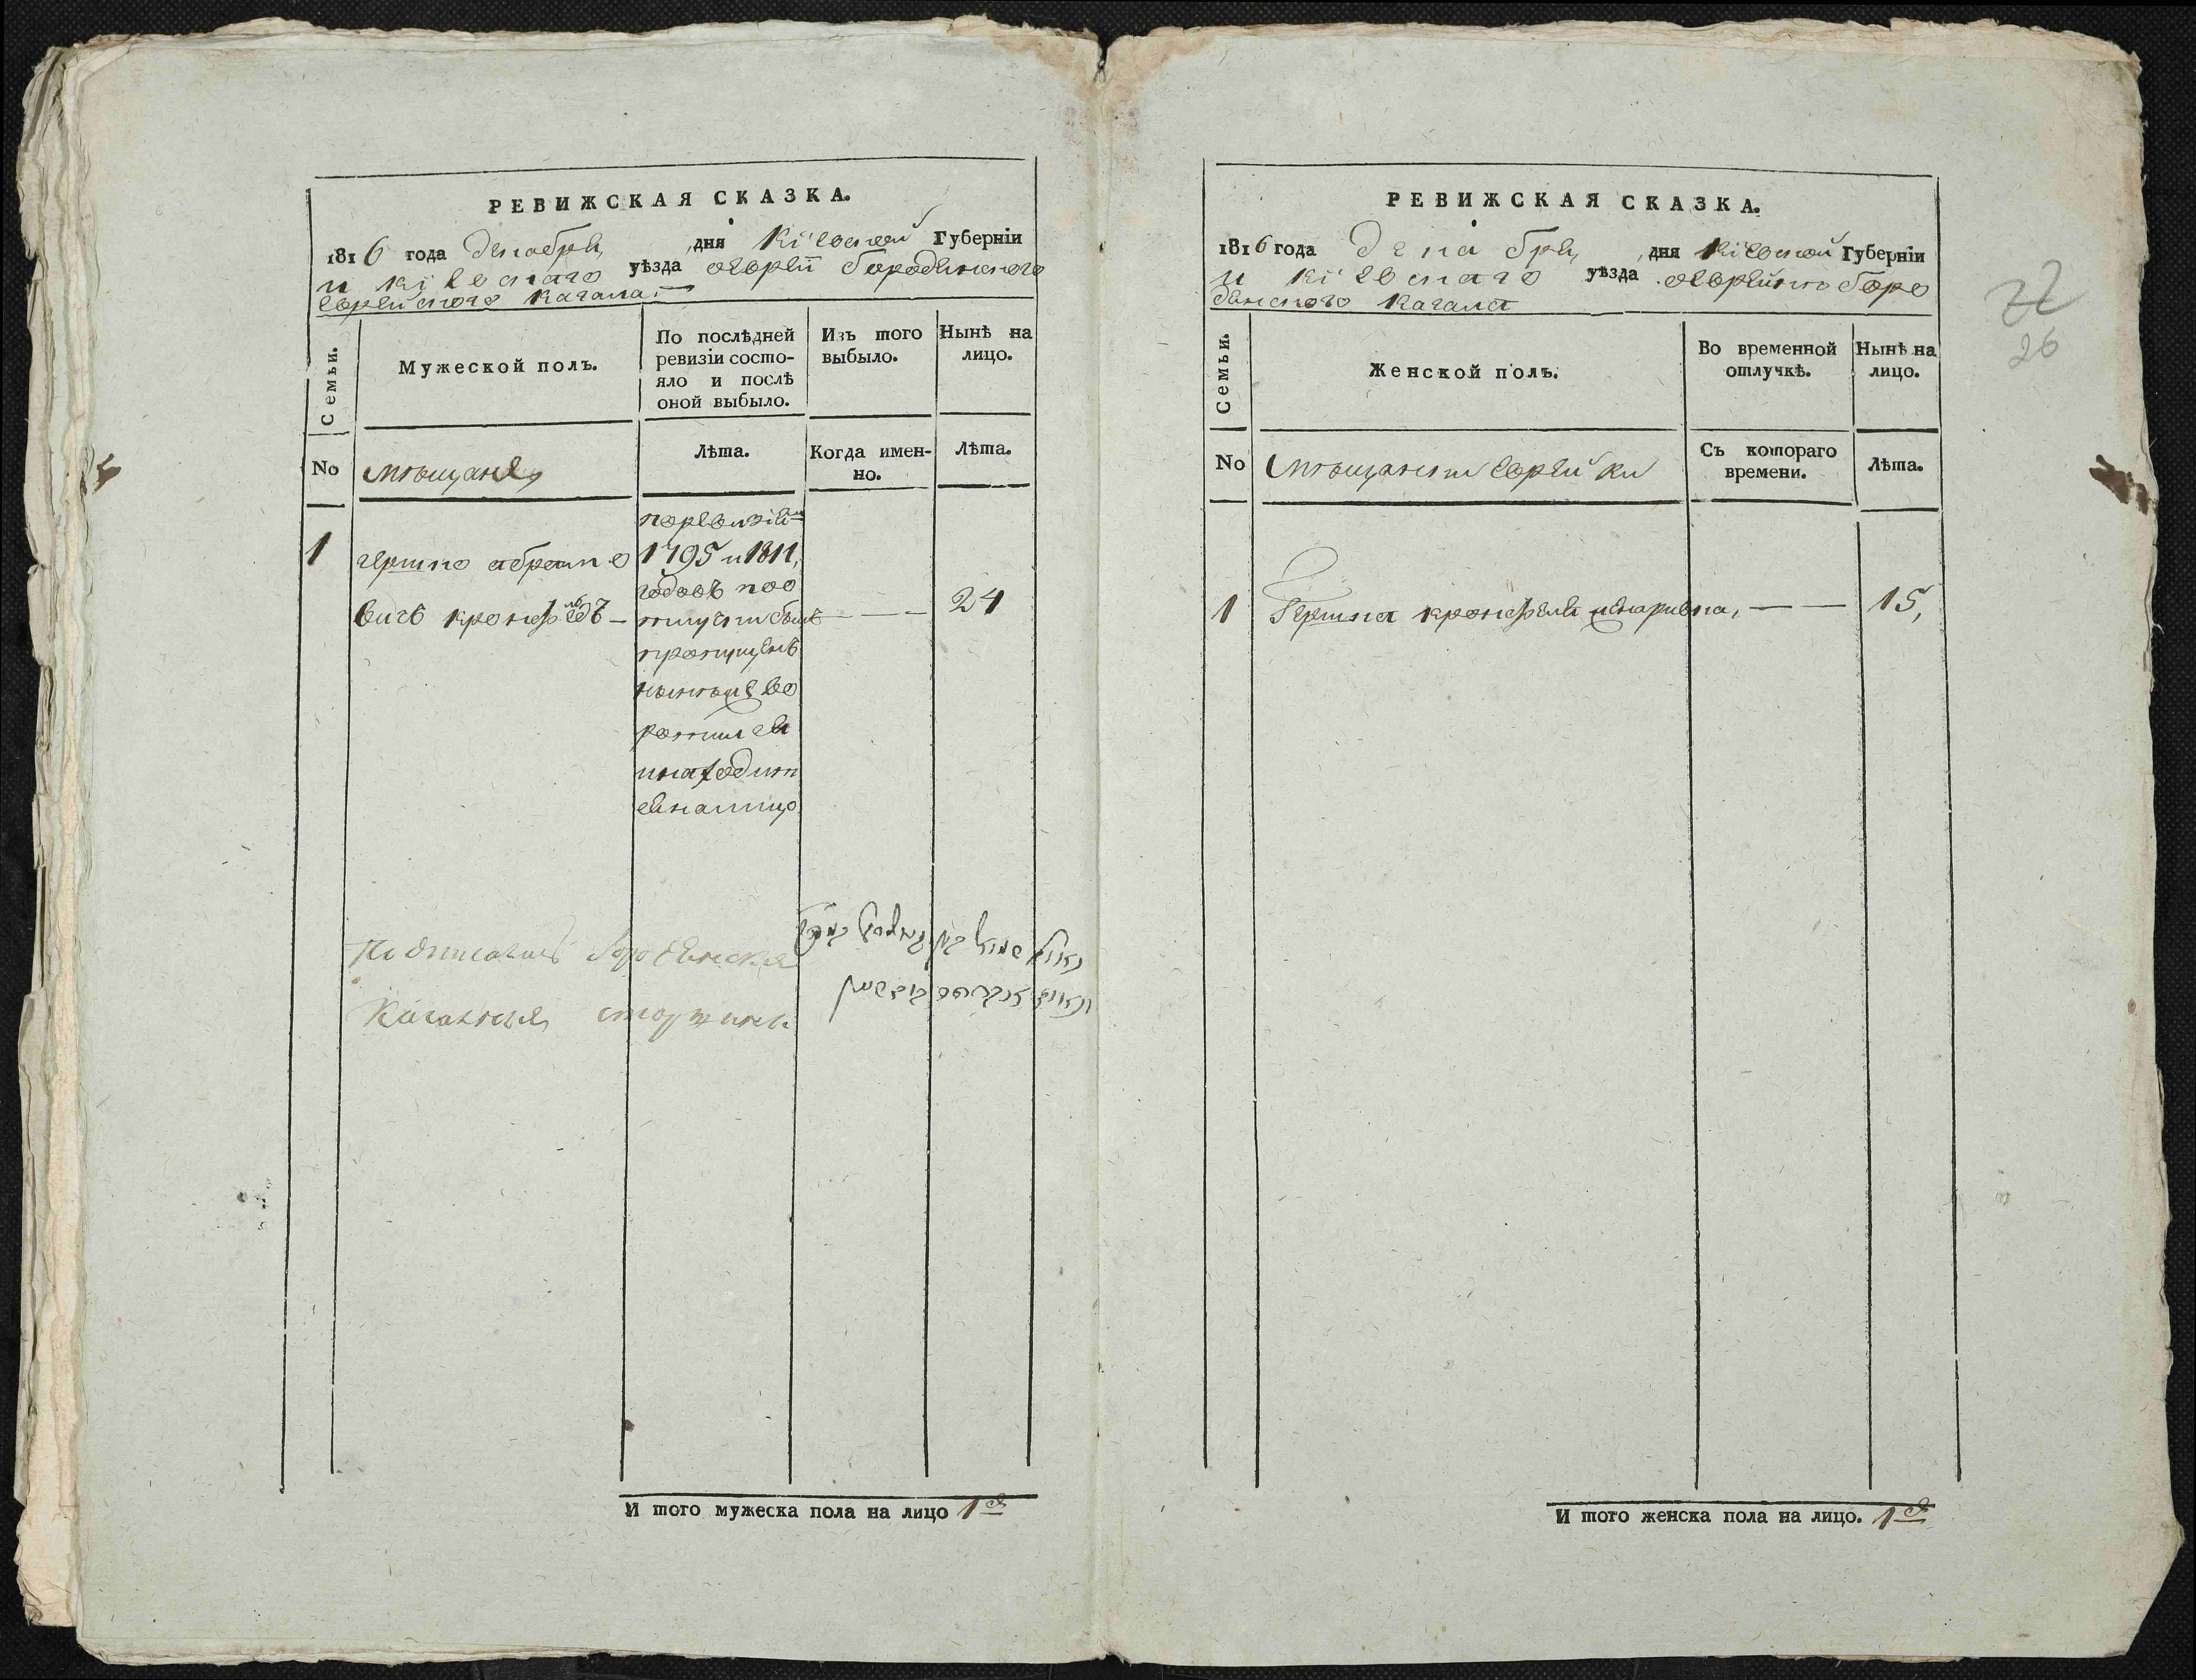 РЕВИЖСКАЯ СКАЗКА.
1816 года декабря, дня Кіевской Губерніи
и кіевскаго уѣзда о еврей Бородянского
еврейского кагала
Семьи.
Мужеской полъ.
По послѣдней ревизіи состо-
яло и послѣ оной выбыло.
Изъ того выбыло.
Нынѣ на лицо.
No
мѣщане
Лѣта.
Когда имен-
но.
Лѣта.
1
гершко абрамо
вичъ кронфельдъ
по ревизіям
1795 и 1811,
годовъ поо
тлучки былъ
пропущенъ
нынѣ же во
ротился
и находит
ся налицо
24
Подписались Бородянские
Кагалные старшины
И того мужеска пола на лицо 1
РЕВИЖСКАЯ СКАЗКА.
1816 года декабря, дня кіевской Губерніи
и кіевскаго уѣзда о еврейкѣ Боро
дянского кагала
22
26
Семьи.
Женской полъ.
Во временной отлучкѣ.
Нынѣ на лицо.
No
мѣщански еврейки
Съ котораго времени.
Лѣта.
1
Гершка кронфеля
15,
И того женска пола на лицо. 1